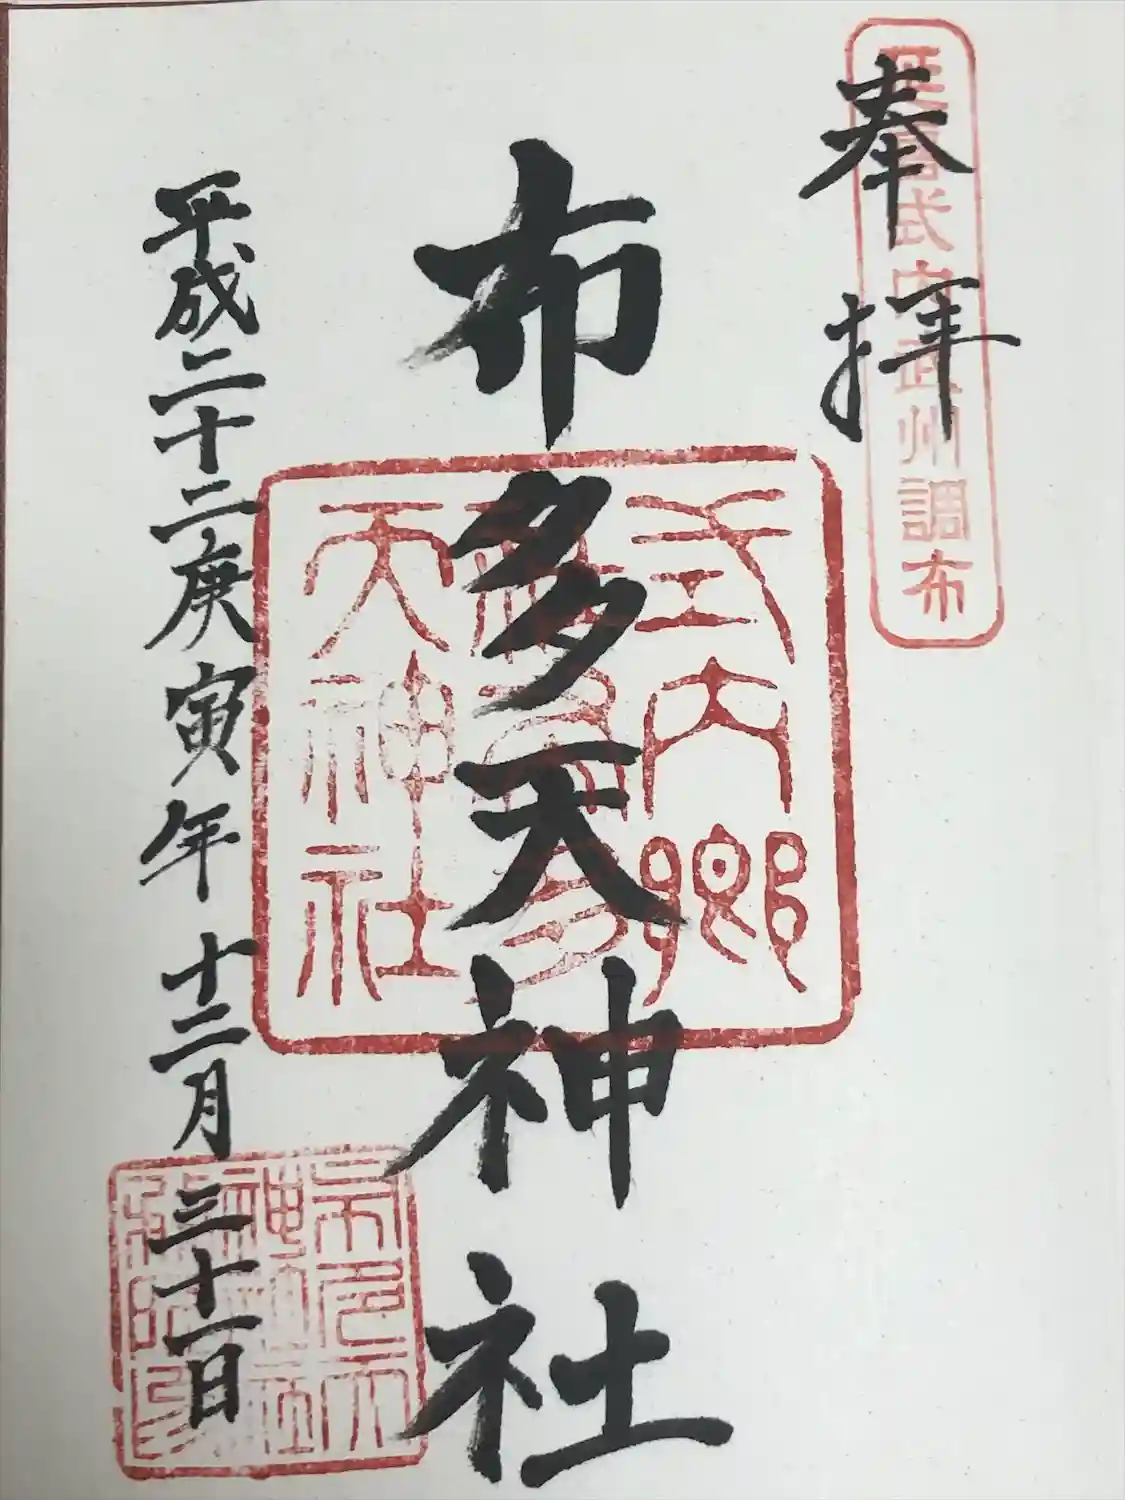 奉拝
延喜式内武州調布
布多天神社
式内郷
天神社
平成二十二庚寅年十二月三十一日